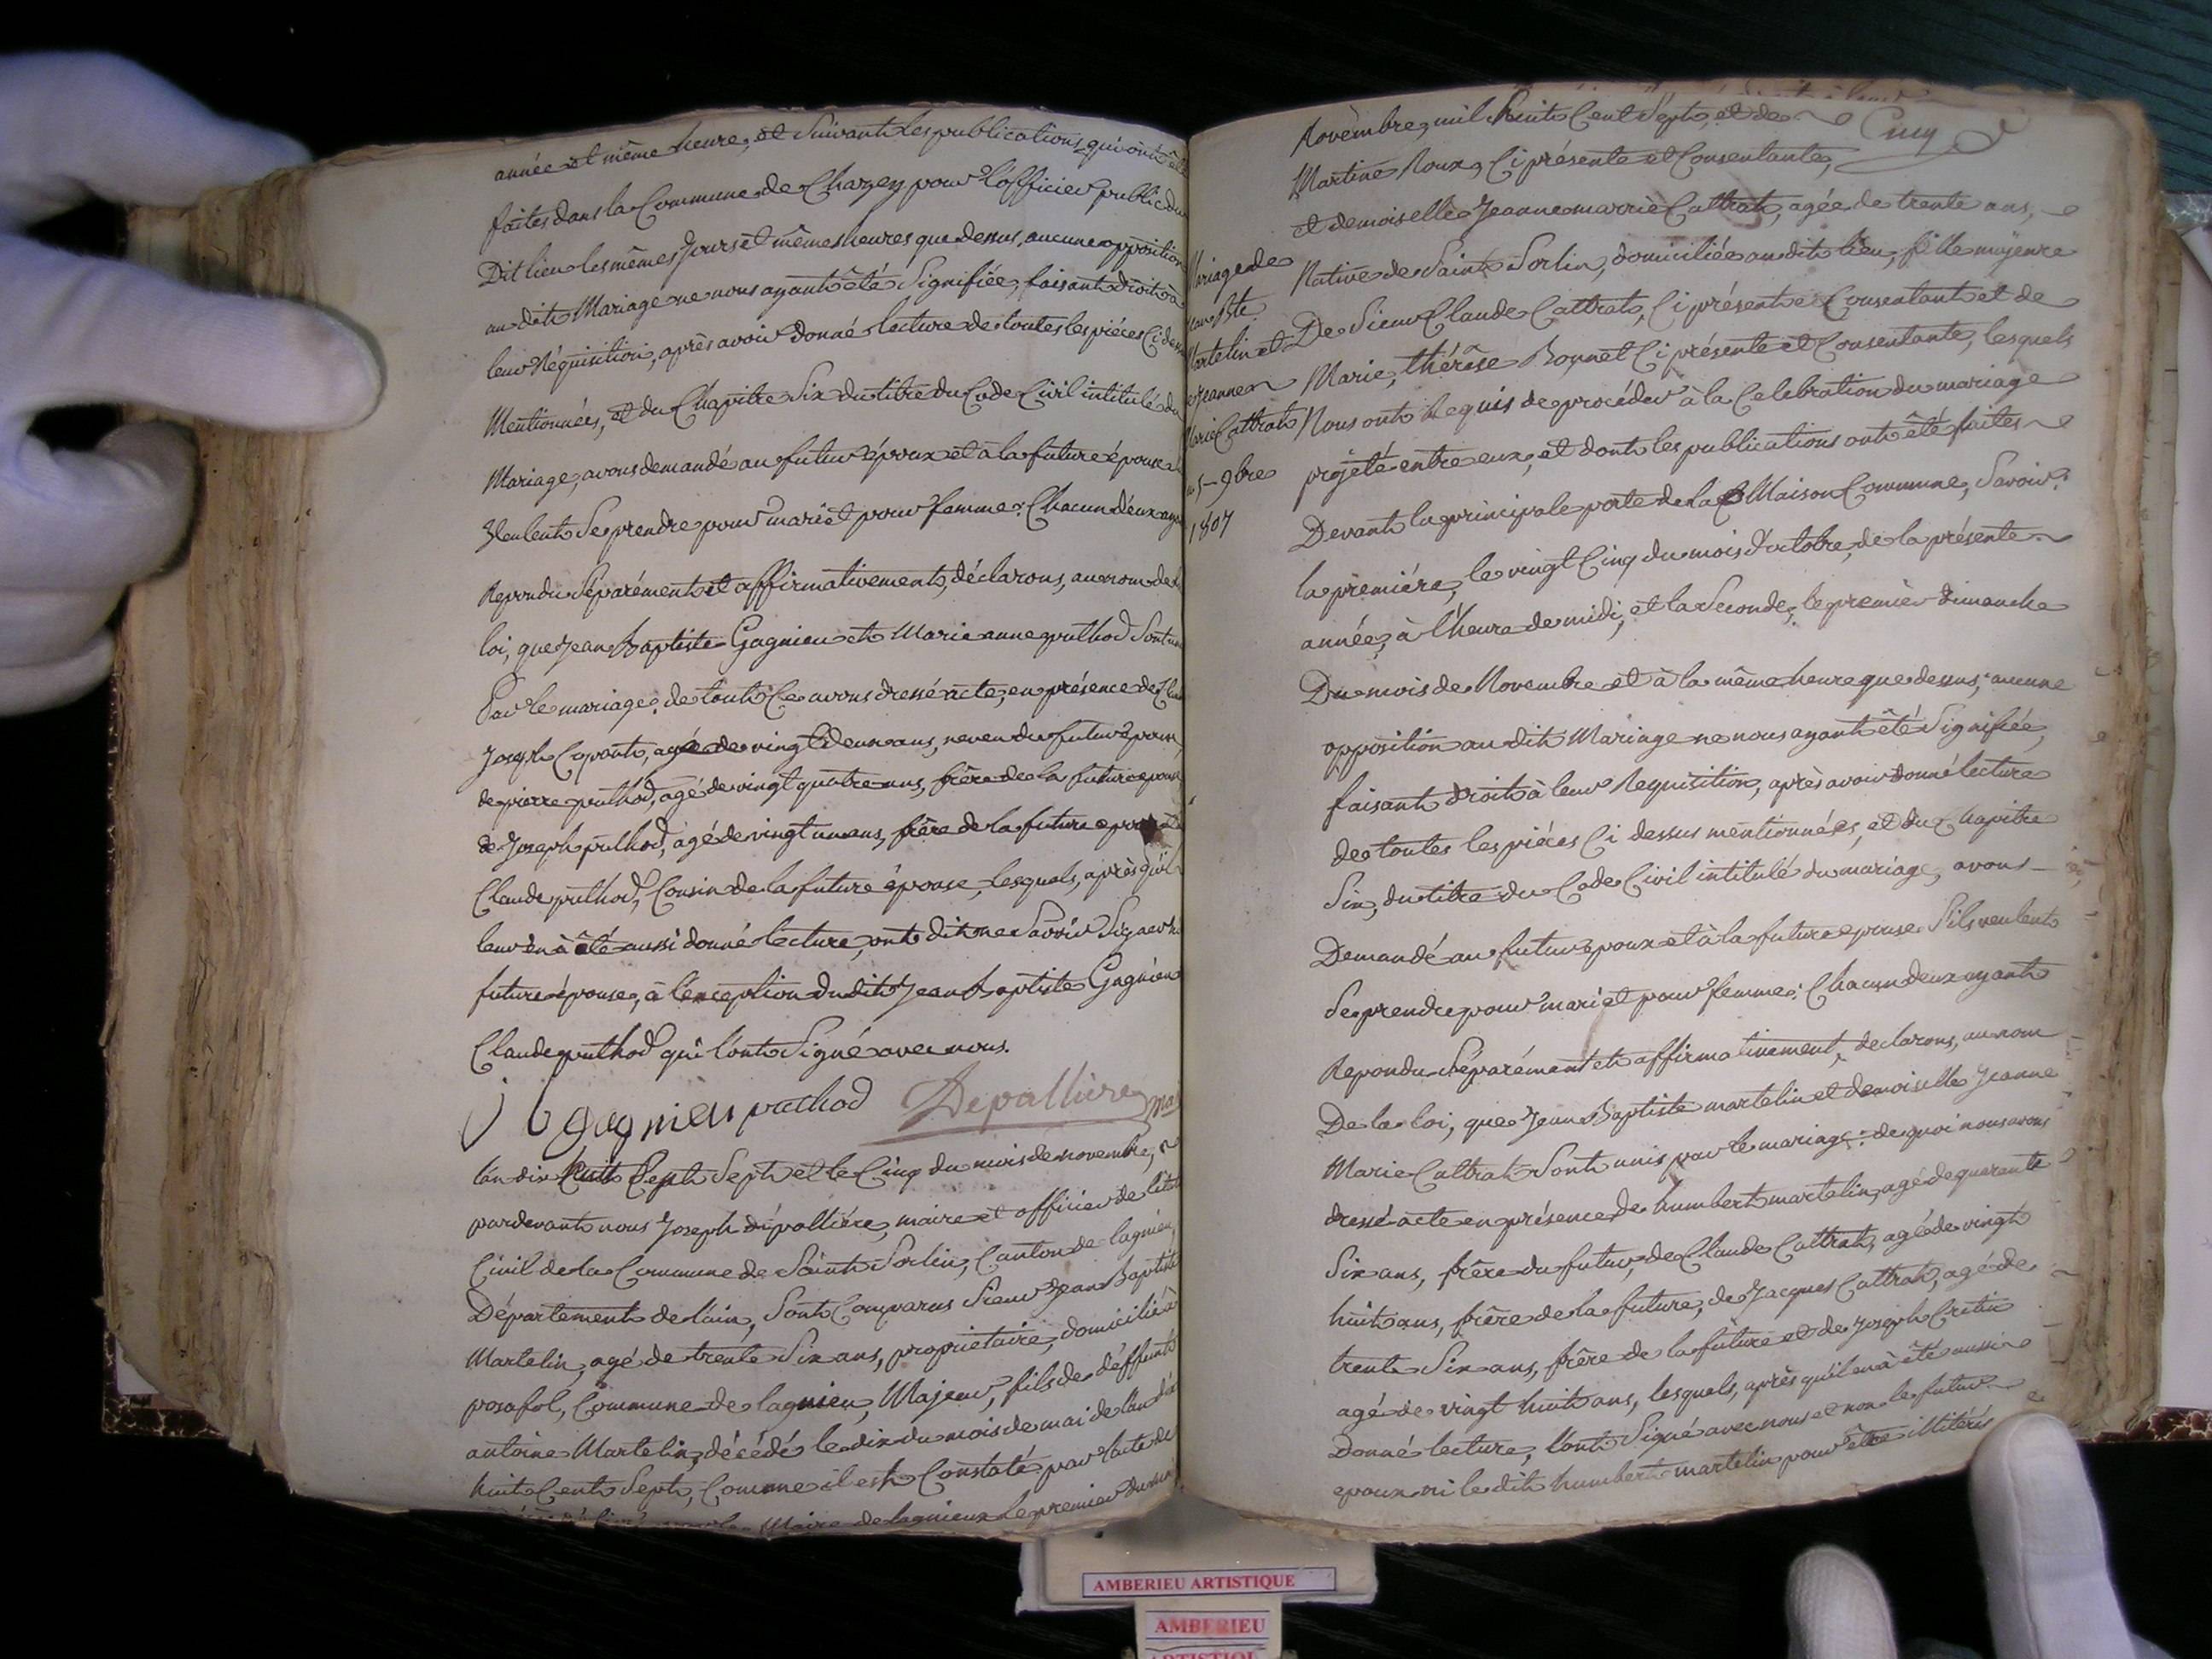 année et même heure, et Suivant les publications qui ont été
faites dans la Commune de Chazey pour l'officier public du
Dit lieu les mêmes Jours et mêmes heures que dessus, aucune opposition
au dit Mariage ne nous ayant êté Signifiée, faisant droit à
leur Réquisition, après avoir donné lecture de toutes les piéces Ci dess
Mentionnées, et du Chapitre Six du titre du Code Civil intitulé du
Mariage, avons demandé au futur époux et à la future épouse
veulent Se prendre pour mari et pour femme; Chacun d'eux ayant
Repondu Séparément et affirmativement, déclarons, au nom de la
loi, que Jean Baptiste Gagnieu et Marie anne pruthod Sont unis
Par le mariage; de tout Ce avons dressé acte, en présence de
Joseph Coponat, agé de vingt deux ans, neveu du futur époux
de pierre pruthod, agé de vingt quatre ans, frère de la future epouse
de Joseph pruthod, agé de vingt un ans, frère de la future epouse
Claude pruthod, Cousin de la future épouse, lesquels, après qu'il
leur en à êté aussi donné lecture, ont dit ne Savoir Signer ni
future épouse, à l'exception du dit Jean Baptiste Gagnieu
Claude pruthod qui l'ont Signé avec nous.
J b gagnieu pruthod Depalliere mai
l'an dix huit Cent Sept et le Cinq du mois de novembre,
pardevant nous Joseph dépalliére, maire et officier de l'état
Civil de la Commune de Saint Sorlin, Canton de lagnieu,
Département de l'ain, Sont Comparus Sieur Jean Baptiste
Martelin, agé de trente Six ans, propriétaire, domicilié à
posafol, Commune de lagnieu, Majeur, fils de déffunt
antoine Martelin, décédé le dix du mois de mai de l'an dix
huit Cent Sept, Comme il est Constaté par l'acte de
Maire de lagnieux le premier du mois
Novembre, mil huit Cent Sept, et de
Martine Roux, Ci présente et Consentante,
et demoiselle Jeanne marrie Cattrat, agée de trente ans,
Native de Saint Sorlin, domiciliée au dit lieu, fille majeure
De Sieur Claude Cattrat, Ci présent Consentant et de
Marie, thérèse Bonnet Ci présente et Consentante, lesquels
Nous ont Requis de procéder à la Celebration du mariage
projeté entre eux, et dont les publications ont êté faites
Devant la principale porte de la Maison Commune, Savoir:
la première, le vingt Cinq du mois d'octobre, de la présente
année, à l'heure de midi, et la Seconde, le premier dimanche
Du mois de Novembre et à la même heure que dessus; aucune
opposition au dit Mariage ne nous ayant êté Signifiée,
faisant droit à leur Requisition, après avoir donné lecture
de toutes les piéces Ci dessus mentionnées, et du Chapitre
Six, du titre du Code Civil intitulé du mariage, avons
Demandé au futur epoux et à la future epouse S'ils veulent
Se prendre pour mari et pour femme; Chacun d'eux ayant
Repondu Séparémant et affirmativement, declarons, au nom
De la loi, que Jean Baptiste martelin et demoiselle Jeanne
Marie Cattrat Sont unis par le mariage; de quoi nous avons
dressé acte en présence de humbert martelin, agé de quarante
Six ans, frère du futur, de Claude Cattrat, agé de vingt
huit ans, frère de la future, de Jacques Cattrat, agé de
trente Six ans, frère de la future et de Joseph Critin
agé de vingt huit ans, lesquels, après qu'il en à êté aussi
Donné lecture, l'ont Signé avec nous et non le futur
epoux ni le dit humbert martelin pour être illitéris
Mariage de
jean Bte
Martelin et
Jeanne
Marie Cattrat
5 9bre
1807
AMBERIEU ARTISTIQUE
AMBERIEU
ARTISTIQUE